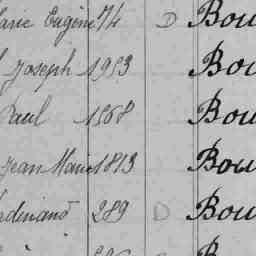 Marie Eugène 74 D Bou
Joseph 1953 Bou
Paul 1568 Bou
Jean Marie 1813 Bou
Ferdinand 289 D Bou